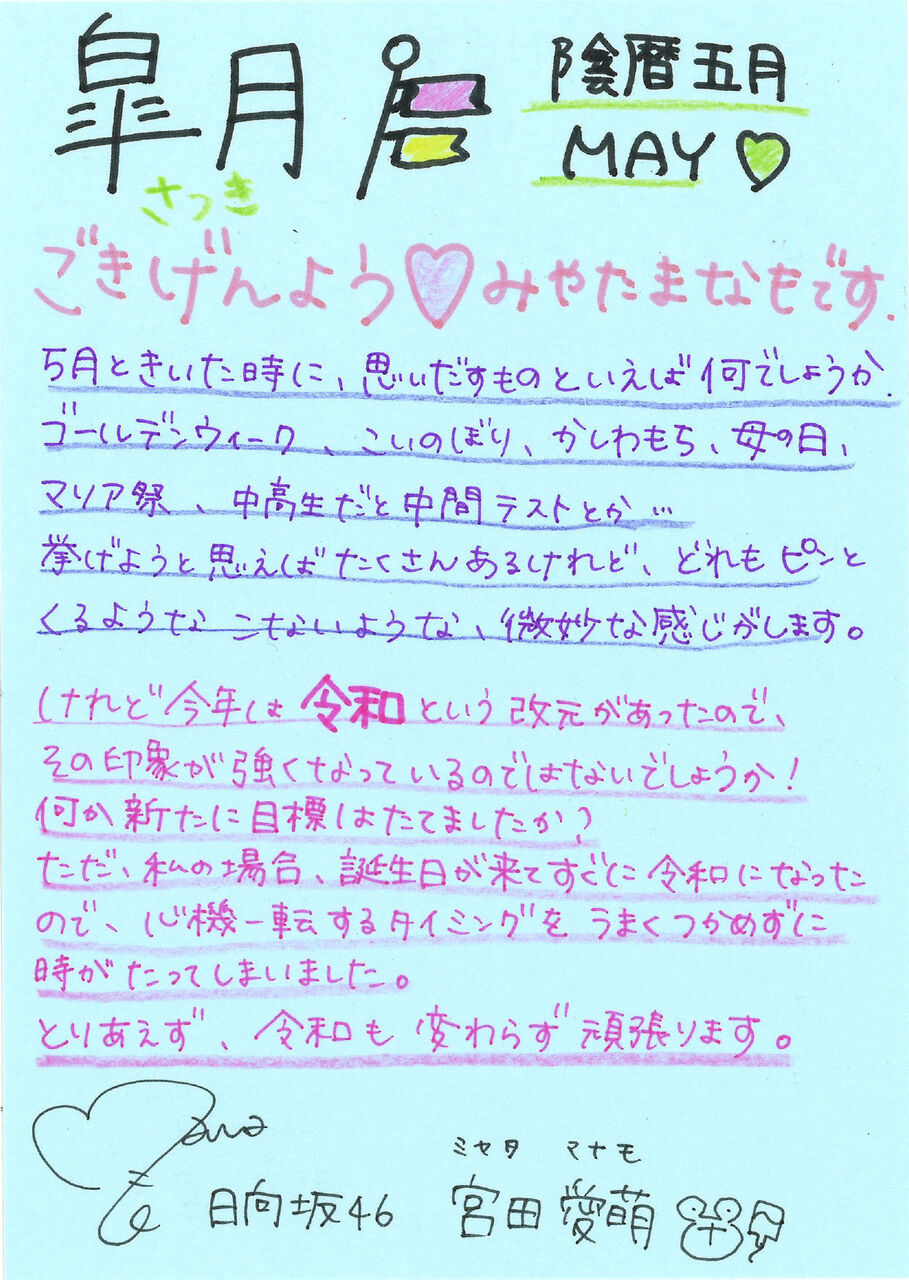 皐月
さつき
陰暦五月
MAY
ごきげんよう♡みやたまなもです.
5月ときいた時に、思いだすものといえば何でしょうか.
ゴールデンウィーク、こいのぼり、かしわもち、母の日、
マリア祭、中高生だと中間テストとか…
挙げようと思えばたくさんあるけれど、どれもピンと
くるような こないような、微妙な感じがします。
けれど今年は令和という改元があったので、
その印象が強くなっているのではないでしょうか!
何か新たに目標はたてましたか?
ただ、私の場合、誕生日が来てすぐに令和になった
ので、心機一転するタイミングをうまくつかめずに
時がたってしまいました。
とりあえず、令和も変わらず頑張ります。
ミヤタ マナモ
日向坂46 宮田愛萌